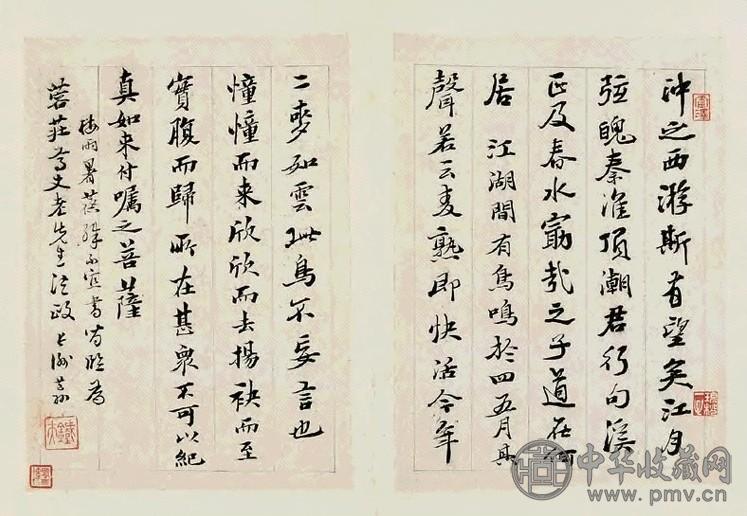 冲之西游斯有望矣江月
弦魄秦淮顶潮君行句溪
正及春水窮哉之子道在何
居　江湖間有鳥鳴於四五月其
聲若云麦熟即快活今年
二麥如雲此鳥不妄言也
憧憧而来欣欣而去揚袂而至
實腹而歸所在甚衆不可以紀
真如来付嘱之菩薩
梅雨暑蒸殊不宜書
老先生法政
中华收藏网
www.pmv.cn